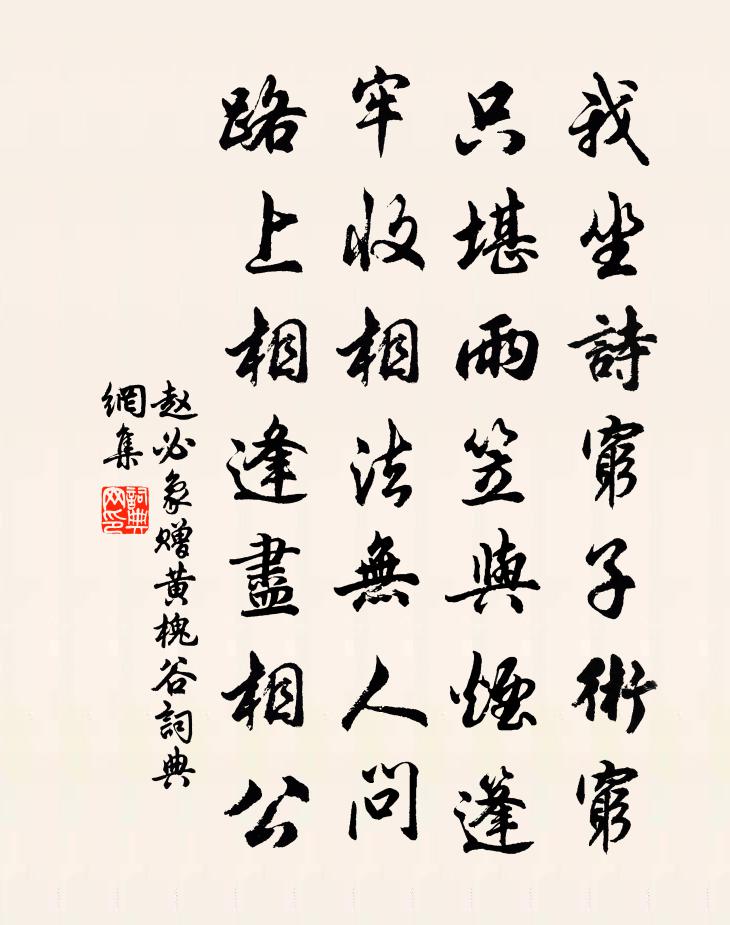 我坐詩窮子術窮
只堪雨笠與煙篷
牢收相法無人問
路上相逢盡相公
赵必象赠黄槐谷詞典
網集
詞典
网印